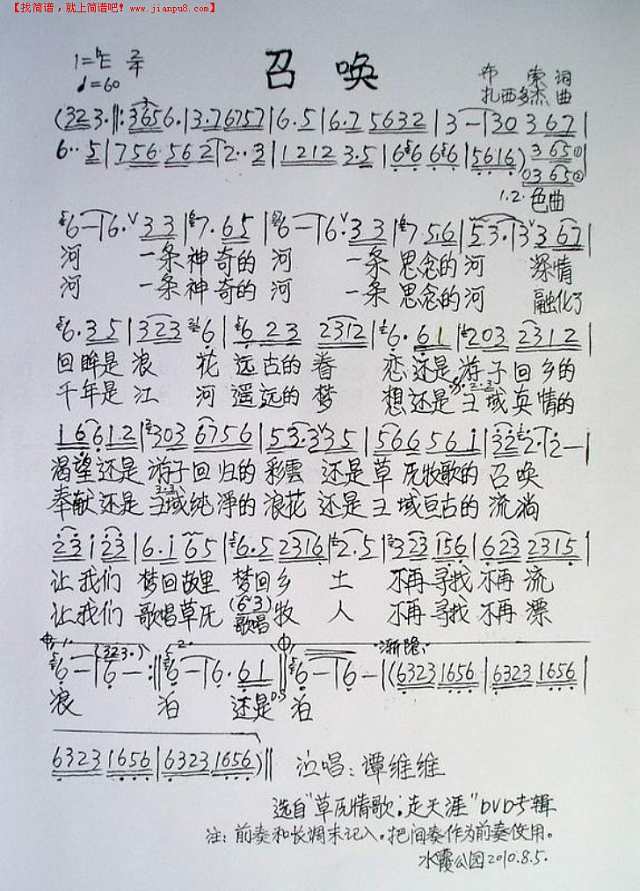 【找简谱，就上简谱吧! www.jianpu8.com】
召唤
1=♭E 2/4
♩=60
布 索 词
扎西多杰 曲
(323.‖:3656.|3.76757|6.5|6.7 5632|3—|30 3 67|
6·· 5|756·56 2—|2·· 3|1212 3·5|6 6 6 6|5616)3 65①|
03 65②
1.2.色曲
6—|6.ⱽ33|7.65|6—|6.ⱽ33|7.56|53.|3ⱽ3 67|
河 一条神奇的河 一条思念的河 深情
河 一条神奇的河 一条思念的河 融化了
6.35|323 6|623 2312|6. 61|203 2312|
回眸是浪 花 远古的眷 恋还是游子回乡的
千年是江 河 遥远的梦 想还是 域真情的
16612|303 6756|53·3ⱽ35|566561|32 2·|2—|
渴望还是游子回归的彩雲 还是草厡牧歌的召唤
奉献还是 域纯净的浪花 还是 域亘古的流淌
23 1 23|6.1 65|6.5 2316|2.5|323 156|623 2315|
让我们 梦回故里 梦回乡 土 不再寻找 不再流
让我们 歌唱草厡(63)歌唱牧 人 不再寻找 不再漂
1. (323.) 2. 渐隐
6—|6—:‖6—|6. 61‖6—|6—|(6323 1656|6323 1656|
浪 泊 还是 泊
6323 1656|6323 1656)‖ 泣唱：谭维维
选自"草厡情歌·走天涯"DVD专辑
注：前奏和长调未记入。把间奏作为前奏使用。
水霞公园2010.8.5.